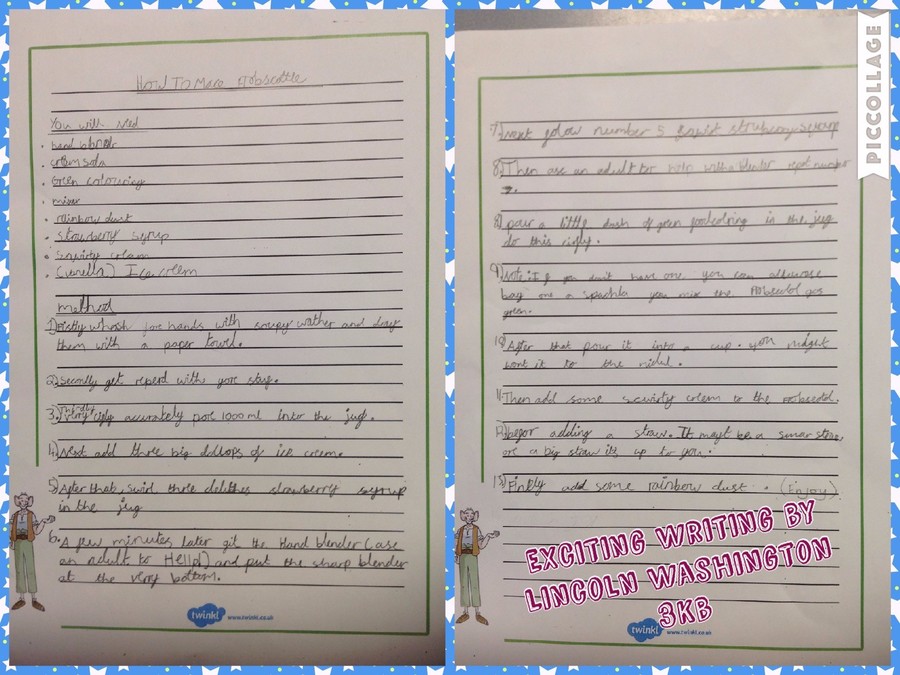 How To Mace Fobscottle
You will Ned
• hand blender
• creamsoda
• Green colouring
• mixer
• rainbow dust
• strawberry syrup
• Squirty cream
• (vanella) Ice creem
method
1) Firstly whosh fore hands with soupy wather and dray
them with a paper towl.
2) Secondly get reperd with yore stuf.
Thirdly
3. very cefly accurately pore 1000ml into the jug.
4) Next add three big dollops of ice creme.
5) After thab, swirl three delithes strawberry syrup
in the jug
6. A few minutes later git the Hand blender (ase
an adult to Hellp!) and put the sharp blender
at the very bottom.
7) Next folow number 5 strubeny syrup
8) Then ase an adult for help with a blender repet number
7.
8) pour a little dash of gren foodcolring in the jug
do this
9) Note: if you don't have one you can
bay one a you mix the gos
green.
10) After that pour it into a cup. you might
wont it to the
11. Then add some scwirty creem to the Fobscotol.
12) befor adding a straw. It mayt be a smar straw
ore a big straw its up to you.
13) Finkly add some rainbow dust. (Enjoy)
twinkl www.twinkl.co.uk
twinkl www.twinkl.co.uk
EXCITING WRITING BY
LINCOLN WASHINGTON
3KB
PICCOLLAGE